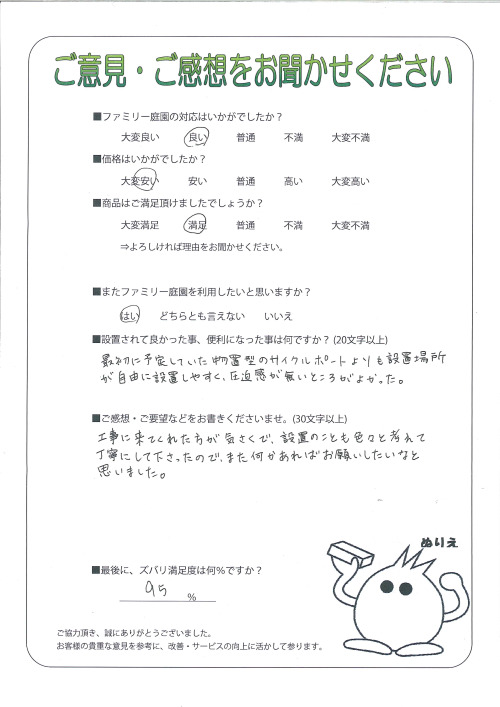 ご意見・ご感想をお聞かせください
■ファミリー庭園の対応はいかがでしたか？
大変良い 良い 普通 不満 大変不満
■価格はいかがでしたか？
大変安い 安い 普通 高い 大変高い
■商品はご満足頂けましたでしょうか？
大変満足 満足 普通 不満 大変不満
⇒よろしければ理由をお聞かせください。
■またファミリー庭園を利用したいと思いますか？
はい どちらとも言えない いいえ
■設置されて良かった事、便利になった事は何ですか？(20文字以上)
最初に予定していた物置型のサイクルポートよりも設置場所
が自由に設置しやすく、圧迫感が無いところがよかった。
■ご感想・ご要望などをお書きくださいませ。(30文字以上)
工事に来てくれた方が気さくで、設置のことも色々と考えて
丁寧にして下さったので、また何かあればお願いしたいなと
思いました。
ぬりえ
■最後に、ズバリ満足度は何％ですか？
95 ％
ご協力頂き、誠にありがとうございました。
お客様の貴重な意見を参考に、改善・サービスの向上に活かして参ります。